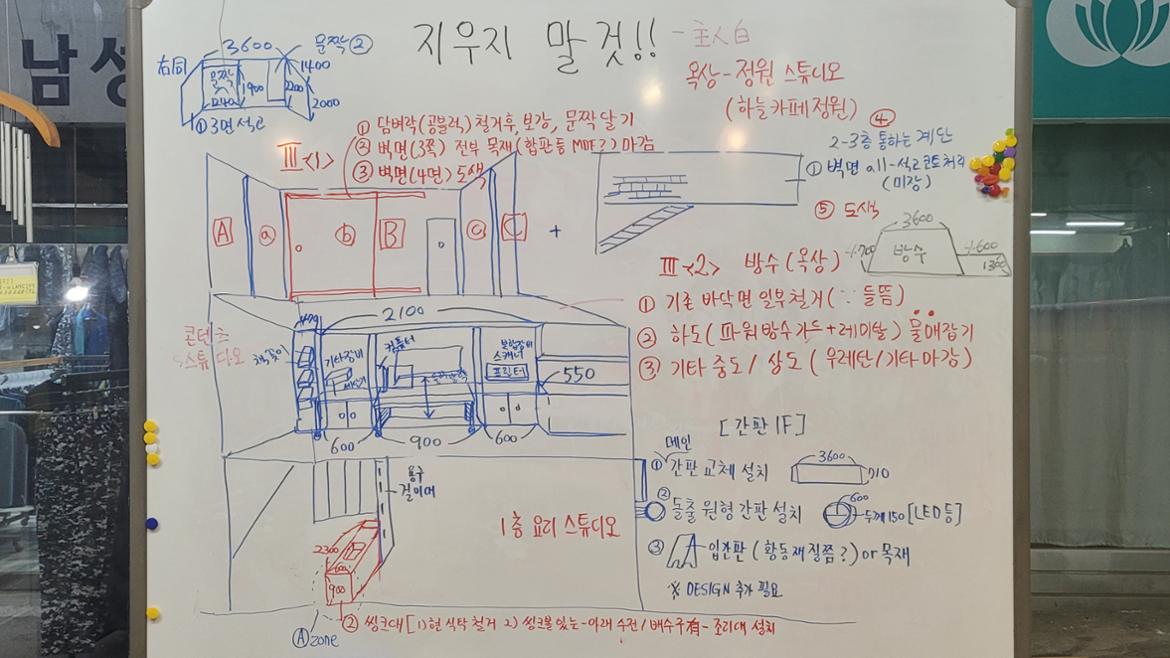 남성
지우지 말것!! - 主人白
3600
문짝②
右同
문짝
1240
1900
2200
1400
2000
①3면석고
옥상-정원 스튜디오
(하늘카페정원)
① 담벼락(공블럭) 철거후, 보강, 문짝달기
② 벽면(3쪽) 전부 목재(합판등 MDF?) 마감
③ 벽면(4면) 도색
Ⅲ<1>
A
ⓐ
ⓑ
B
ⓒ
C
+
④
2-3층 통하는 계단
① 벽면 all-석고콘트처리
(미강)
⑤ 도색
3600
방수
1700
1600
1300
Ⅲ<2> 방수(옥상)
① 기존 바닥면 일부철거(∵ 들뜸)
② 하도(파워방수가드+레미탈) 물매잡기
③ 기타 중도/상도(우레탄/기타마감)
콘텐츠
스튜디오
2100
책꽂이
기타장비
컴퓨터
스캐너
프린터
550
600
900
600
용구
걸이대
1층 요리 스튜디오
2300
600
900
Ⓐzone
② 씽크대[1)현 식탁 철거 2) 씽크볼있는-아래 수전/배수구有- 조리대 설치
[간판 IF]
메인
① 간판 교체 설치
3600
710
② 돌출 원형 간판 설치
600
두께150 [LED등]
③ 입간판(황동재질쯤?) or 목재
※ DESIGN 추가 필요